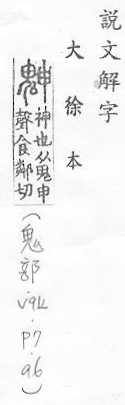 說文解字
大徐本
䰠 神也从鬼申
聲食鄰切
(鬼部.v9上.p7.a6)